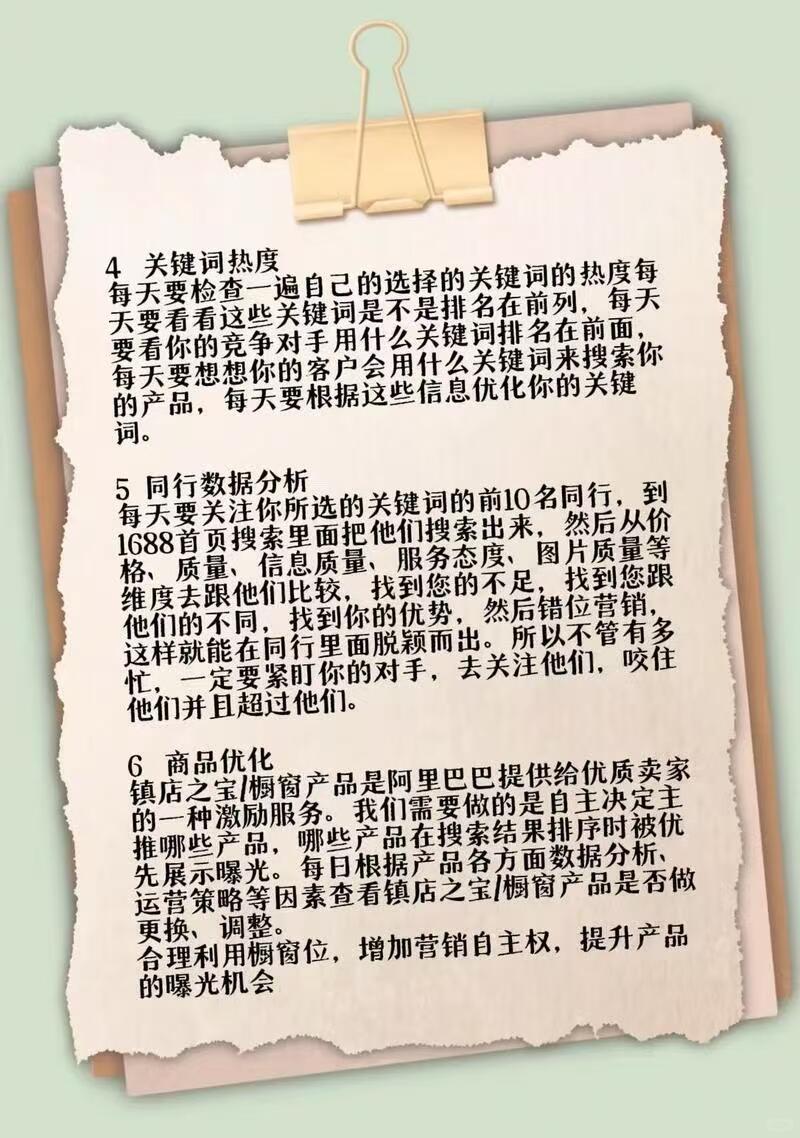 4 关键词热度
每天要检查一遍自己的选择的关键词的热度每
天要看看这些关键词是不是排名在前列，每天
要看你的竞争对手用什么关键词排名在前面，
每天要想想你的客户会用什么关键词来搜索你
的产品，每天要根据这些信息优化你的关键
词。
5 同行数据分析
每天要关注你所选的关键词的前10名同行，到
1688首页搜索里面把他们搜索出来，然后从价
格、质量、信息质量、服务态度、图片质量等
维度去跟他们比较，找到您的不足，找到您跟
他们的不同，找到你的优势，然后错位营销，
这样就能在同行里面脱颖而出。所以不管有多
忙，一定要紧盯你的对手，去关注他们，咬住
他们并且超过他们。
6 商品优化
镇店之宝/橱窗产品是阿里巴巴提供给优质卖家
的一种激励服务。我们需要做的是自主决定主
推哪些产品，哪些产品在搜索结果排序时被优
先展示曝光。每日根据产品各方面数据分析、
运营策略等因素查看镇店之宝/橱窗产品是否做
更换、调整。
合理利用橱窗位，增加营销自主权，提升产品
的曝光机会